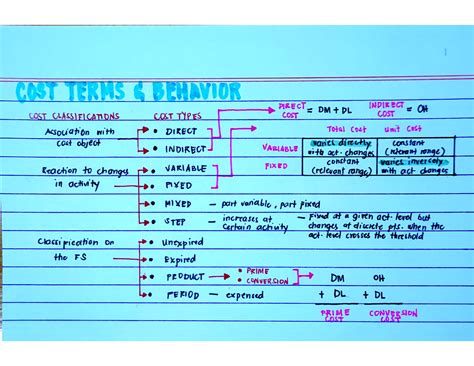 COST TERMS & BEHAVIOR
COST CLASSIFICATIONS
COST TYPES
DIRECT COST = DM + DL
INDIRECT COST = OH
Association with cost object
• DIRECT
• INDIRECT
Total Cost
Unit Cost
VARIABLE
varies directly with act. changes
constant (relevant range)
FIXED
constant (relevant range)
varies inversely with act. changes
Reaction to changes in activity
• VARIABLE
• FIXED
• MIXED - part variable, part fixed
• STEP - increases at certain activity
- Fixed at a given act. level but
changes at discrete pts. when the
act. level crosses the threshold
Classification on the FS
• Unexpired
• Expired
• PRODUCT
• PRIME
• CONVERSION
• PERIOD - expensed
DM OH
+ DL + DL
PRIME COST
CONVERSION COST